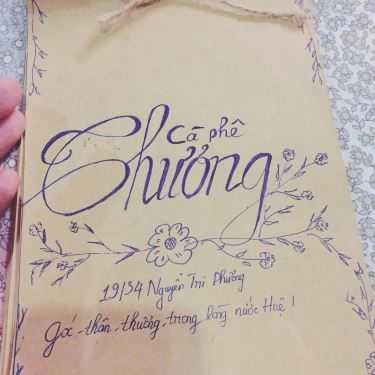 Cà phê
Chương
19/34 Nguyễn Tri Phương
góc thân thương trong lòng nước Huệ!